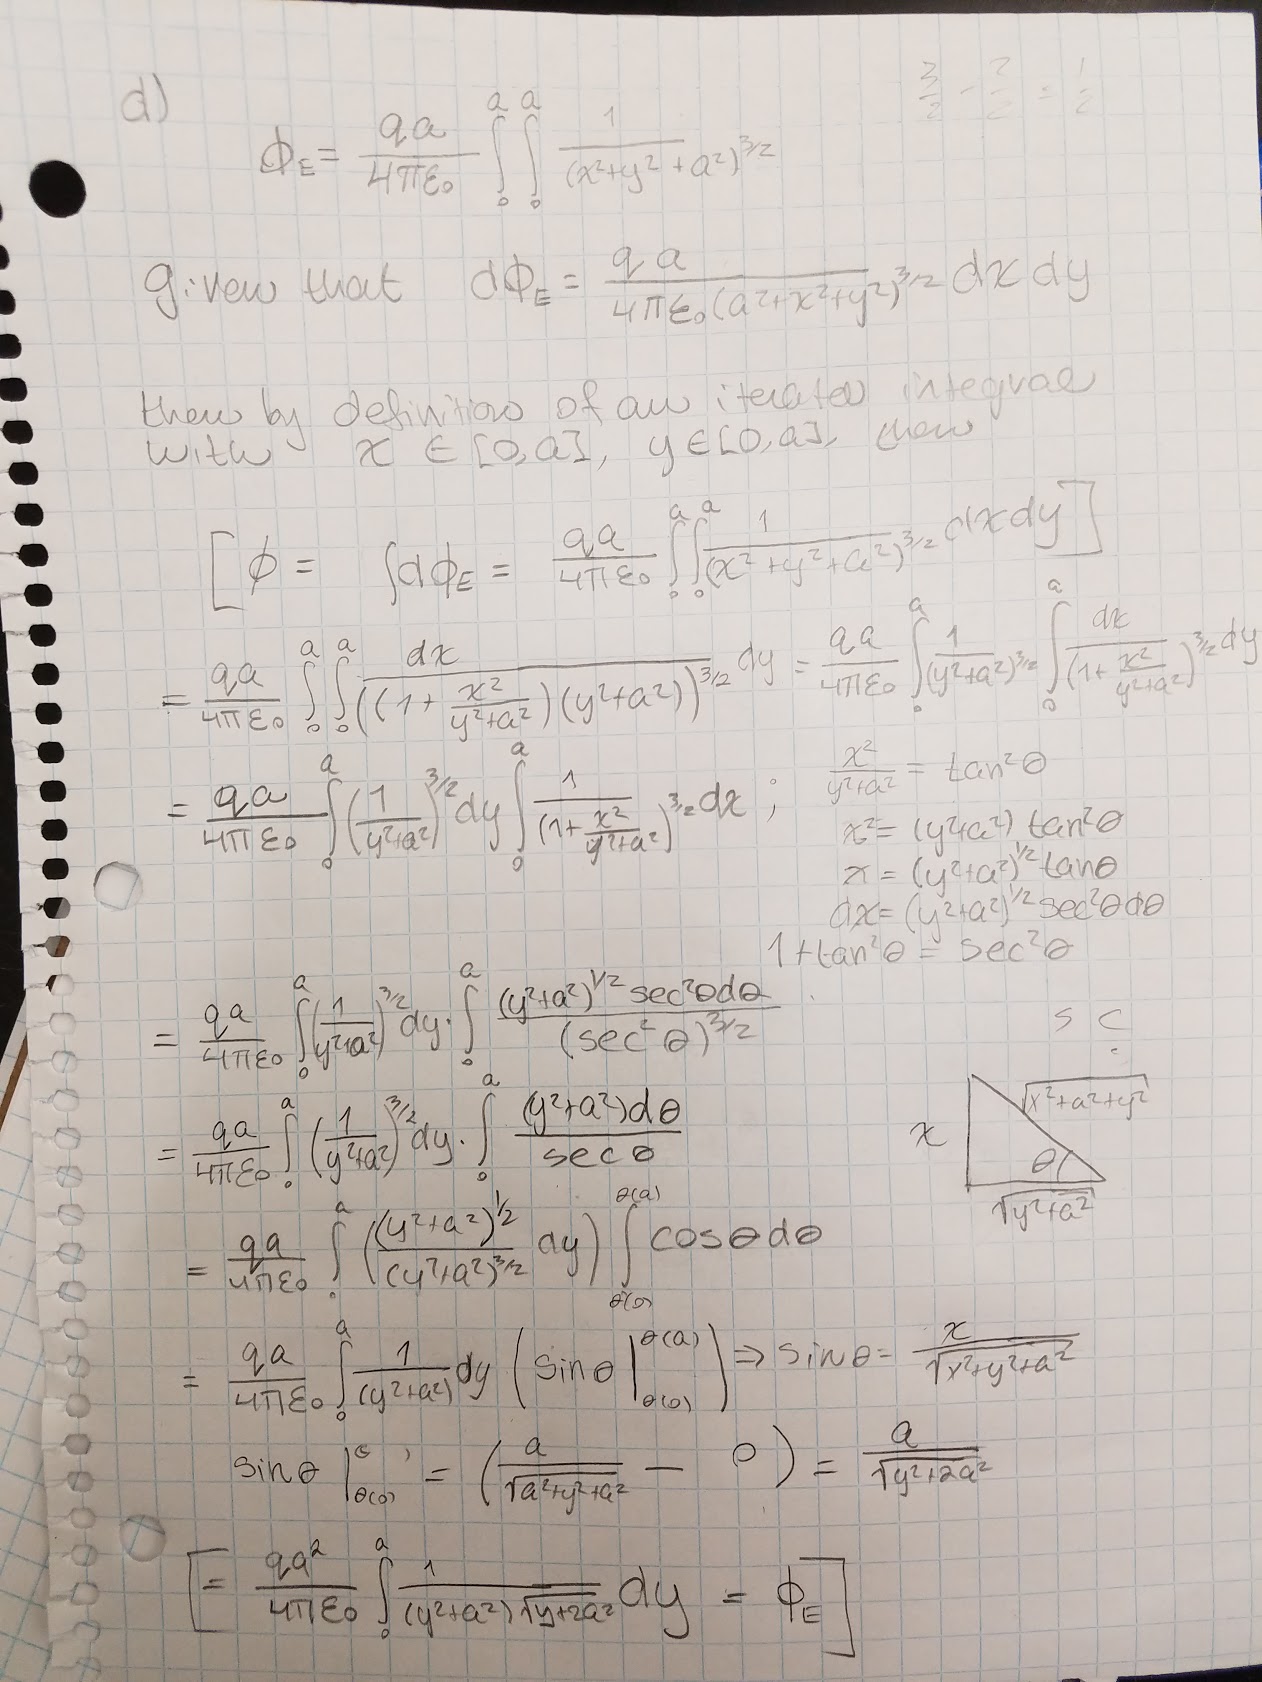 d)
3/2 - 2/2 = 1/2
ϕ_E = qa/4πε₀ ∫₀^a ∫₀^a 1/(x²+y²+a²)^3/2
Given that dϕ_E = qa/4πε₀(a²+x²+y²)^3/2 dx dy
then by definition of an iterated integral
with x ∈ [0,a], y ∈ [0,a], then
[ϕ = ∫dϕ_E = qa/4πε₀ ∫₀^a ∫₀^a 1/(x²+y²+a²)^3/2 dx dy]
= qa/4πε₀ ∫₀^a ∫₀^a dx/((1+x²/y²+a²)(y²+a²))^3/2 dy = qa/4πε₀ ∫₀^a 1/(y²+a²)^3/2 ∫₀^a dx/(1+x²/y²+a²)^3/2 dy
= qa/4πε₀ ∫₀^a (1/y²+a²)^3/2 dy ∫₀^a 1/(1+x²/y²+a²)^3/2 dx ;
x²/y²+a² = tan²θ
x² = (y²+a²) tan²θ
x = (y²+a²)^1/2 tanθ
dx = (y²+a²)^1/2 sec²θdθ
1+tan²θ = sec²θ
= qa/4πε₀ ∫₀^a (1/y²+a²)^3/2 dy · ∫₀^a (y²+a²)^1/2 sec²θdθ/(sec²θ)^3/2
S C
= qa/4πε₀ ∫₀^a (1/y²+a²)^3/2 dy · ∫₀^a (y²+a²)dθ/secθ
x
√x²+a²+y²
θ
√y²+a²
= qa/4πε₀ ∫₀^a ((y²+a²)^1/2/(y²+a²)^3/2 dy) ∫_θ(0)^θ(a) cosθdθ
= qa/4πε₀ ∫₀^a 1/(y²+a²) dy (sinθ |_θ(0)^θ(a)) ⇒ sinθ = x/√x²+y²+a²
sinθ |_θ(0) = (a/√a²+y²+a² − 0) = a/√y²+2a²
[= qa²/4πε₀ ∫₀^a 1/(y²+a²)√y+2a² dy = ϕ_E]